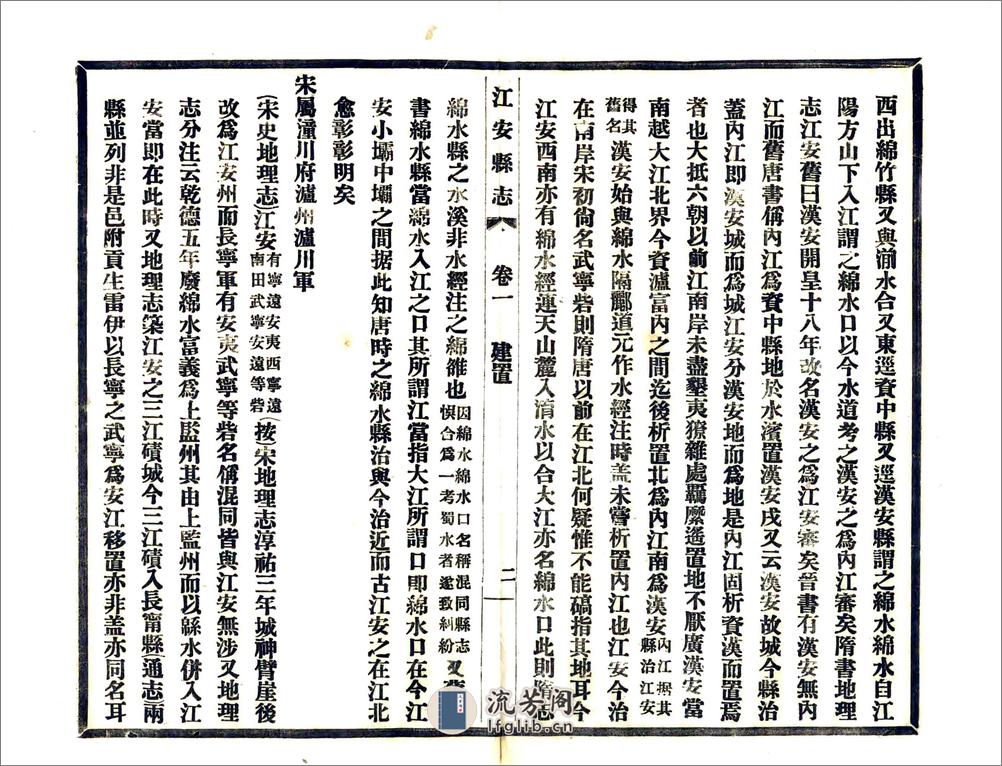 西出綿竹縣又與湔水合又東逕資中縣又逕漢安縣謂之綿水綿水自江
陽方山下入江謂之綿水口以今水道考之漢安之爲內江審矣隋書地理
志江安舊曰漢安開皇十八年改名漢安之爲江安審矣晉書有漢安無內
江而舊唐書偁內江爲資中縣地於水濱置漢安戍又云漢安故城今縣治
蓋內江即漢安城而爲城江安分漢安地而爲地是內江固析資漢而置焉
者也大抵六朝以前江南岸未盡墾夷獠雜處羈縻遙置地不厭廣漢安當
南越大江北界今資瀘富內之間迄後析置北爲內江南爲漢安內江據其縣治江安
得其舊名漢安始與綿水隔酈道元作水經注時盖未嘗析置內江也江安今治
在南岸宋初尙名武寧砦則隋唐以前在江北何疑惟不能碻指其地耳今
江安西南亦有綿水經連天山麓入淯水以合大江亦名綿水口此則隋志
江安縣志 卷一 建置 二
綿水縣之水溪非水經注之綿雒也因綿水綿水口名稱混同縣志悞合爲一考蜀水者遂致糾紛又
書綿水縣當綿水入江之口其所謂江當指大江所謂口即綿水口在今江
安小壩中壩之間据此知唐時之綿水縣治與今治近而古江安之在江北
愈彰彰明矣
宋屬潼川府瀘州瀘川軍
(宋史地理志)江安有寧遠安夷西寧遠南田武寧安遠等砦(按)宋地理志淳祐三年城神臂崖後
改爲江安州而長寧軍有安夷武寧等砦名偁混同皆與江安無涉又地理
志分注云乾德五年廢綿水富義爲上監州其由上監州而以緜水併入江
安當即在此時又地理志築江安之三江磧城今三江磧入長甯縣(通志)兩
縣並列非是邑附貢生雷伊以長寧之武寧爲安江移置亦非盖亦同名耳
流芳阁
lfglib.cn